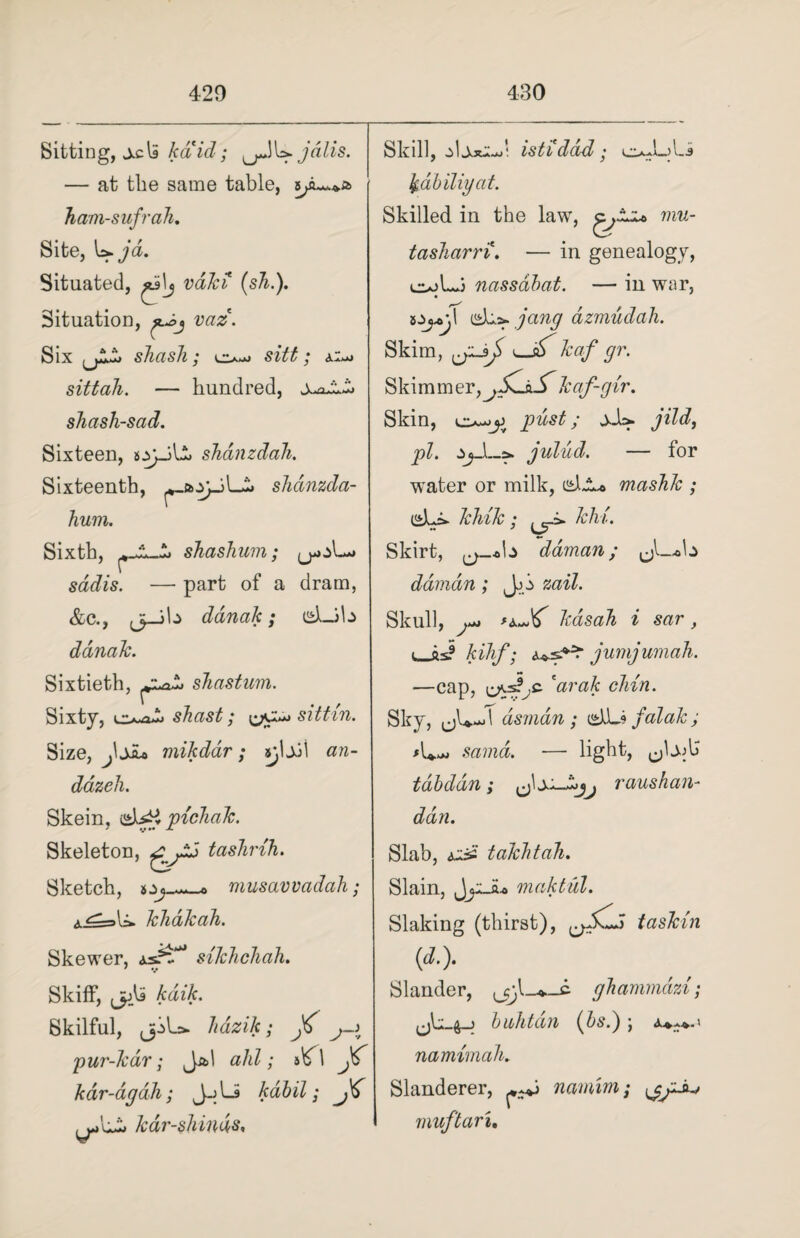 429
Sitting, قاعد ká'id; جالس jális.
— at the same table, همسفره
ham-sufrah.
Site, جا já.
Situated, واقع váki' (sh.).
Situation, وضع vaz'.
Six شش shash; ست sitt; سته
sittah. — hundred, ششصد
shash-sad.
Sixteen, شانزده shánzdah.
Sixteenth, شانزدهم shánzda-
hum.
Sixth, ششم shashum; سادس
sádis. — part of a dram,
&c., دانق dának; دانك
dának.
Sixtieth, شصتم shastum.
Sixty, شصت shast; ستين sittín.
Size, مقدار mikdár; اندازه an-
dázeh.
Skein, پيچك píchak.
Skeleton, تشريح tashríh.
Sketch, مسوده musavvadah;
خاكه khákah.
Skewer, سيخچه síkhchah.
Skiff, قايق káik.
Skilful, حاذق házik; پر كار
pur-kár; اهل ahl; كار اگاه
kár-ágáh; قابل kábil; كار
شناس kár-shinás.
430
Skill, استعداد isti'dád; قابليت
ḳábiliyat.
Skilled in the law, متشرع mu-
tasharri'. — in genealogy,
نسابت nassábat. — in war,
جنگ آزموده jang ázmúdah.
Skim, كف گرفتن kaf gr.
Skimmer, كفگير kaf-gír.
Skin, پوست púst; جلد jild,
pl. جلود julúd. — for
water or milk, مشك mashk;
خيك khík; خى khí.
Skirt, دامن dáman; دامان
dámán; ذيل zail.
Skull, كاسهٔ سر kásah i sar,
قحف kihf; جمجمه jumjumah.
—cap, عرقچين 'arak chín.
Sky, آسمان ásmán; فلك falak;
سماء samá. — light, تابدان
tábdán; روشندان raushan-
dán.
Slab, تخته takhtah.
Slain, مقتول maktúl.
Slaking (thirst), تسكين taskín
(d.).
Slander, غمازى ghammází;
بهتان buhtán (bs.); نميمه
namímah.
Slanderer, نميم namím; مفترى
muftarí.